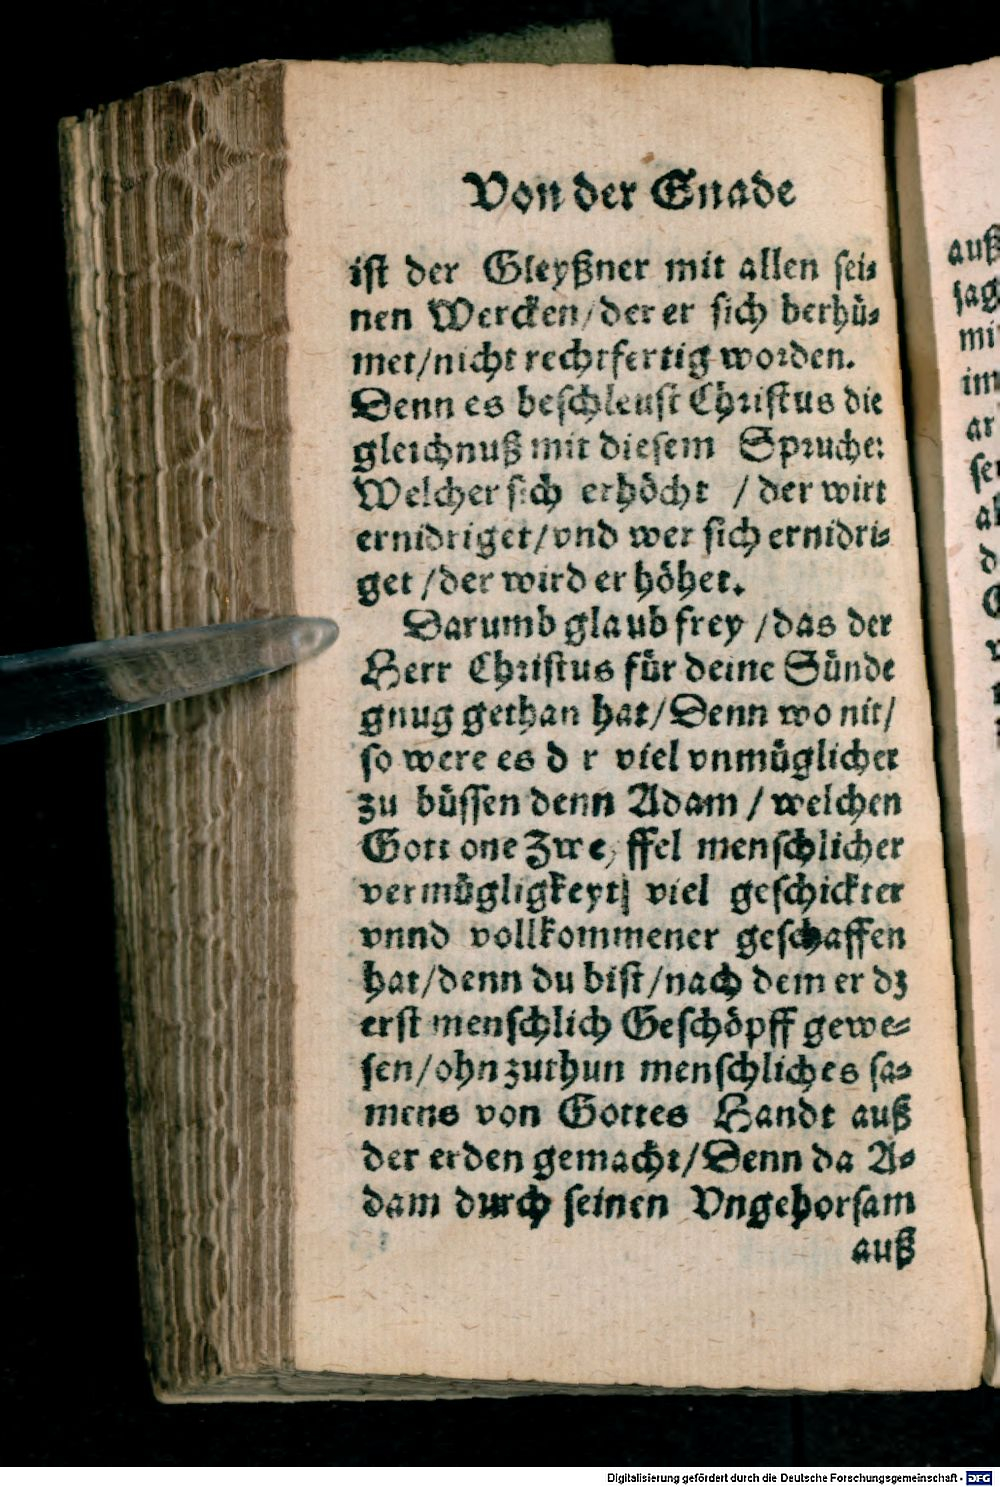 Von der Gnade
ist der Gleyßner mit allen sei-
nen Wercken/der er sich berhü-
met/nicht rechtfertig worden.
Denn es beschleust Christus die
gleichnuß mit diesem Spruche:
Welcher sich erhöcht /der wirt
ernidriget/vnd wer sich ernidri-
get/der wird erhöhet.
Darumb glaub frey/das der
Herr Christus für deine Sünde
gnug gethan hat/Denn wo nit/
so were es d r viel vnmüglicher
zu büssen denn Adam/welchen
Gott one Zweyffel menschlicher
vermügligkeyt viel geschickter
vnnd vollkommener geschaffen
hat/denn du bist/nach dem er dz
erst menschlich Geschöpff gewe-
sen/ohn zuthun menschliches sa-
mens von Gottes Handt auß
der erden gemacht/Denn da A-
dam durch seinen Vngehorsam
auß
auß
sag
mi
im
ar
se
al
d
Digitalisierung gefördert durch die Deutsche Forschungsgemeinschaft - DFG